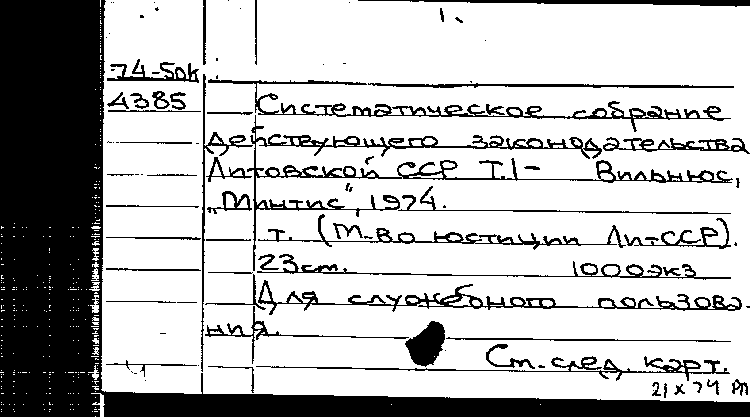 1.
74-50к
4385 Систематическое собрание
действующего законодательства
Литовской ССР Т.1- Вильнюс,
„Минтис", 1974.
т. (М-во юстиции ЛитССР).
23см. 1000экз
Для служебного пользова-
ния.
См. след. карт.
21 X 74 РП